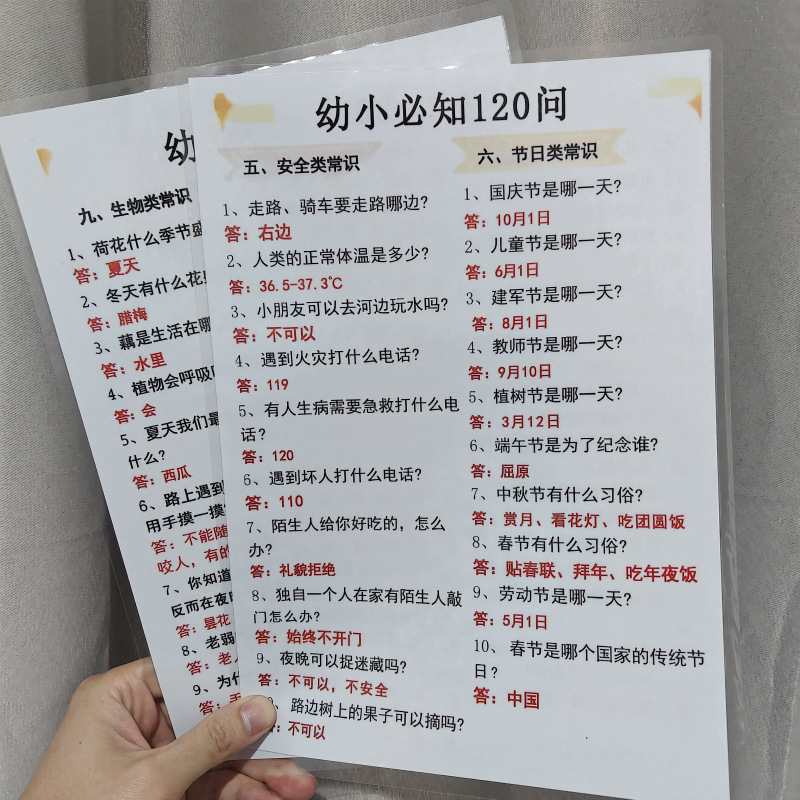 幼小必知120问
五、安全类常识
1、走路、骑车要走路哪边?
答：右边
2、人类的正常体温是多少?
答：36.5-37.3℃
3、小朋友可以去河边玩水吗?
答：不可以
4、遇到火灾打什么电话?
答：119
5、有人生病需要急救打什么电
话?
答：120
6、遇到坏人打什么电话?
答：110
7、陌生人给你好吃的，怎么
办?
答：礼貌拒绝
8、独自一个人在家有陌生人敲
门怎么办?
答：始终不开门
9、夜晚可以捉迷藏吗?
答：不可以，不安全
、路边树上的果子可以摘吗?
答：不可以
六、节日类常识
1、国庆节是哪一天?
答：10月1日
2、儿童节是哪一天?
答：6月1日
3、建军节是哪一天?
答：8月1日
4、教师节是哪一天?
答：9月10日
5、植树节是哪一天?
答：3月12日
6、端午节是为了纪念谁?
答：屈原
7、中秋节有什么习俗?
答：赏月、看花灯、吃团圆饭
8、春节有什么习俗?
答：贴春联、拜年、吃年夜饭
9、劳动节是哪一天?
答：5月1日
10、春节是哪个国家的传统节
日?
答：中国
幼
九、生物类常识
1、荷花什么季节盛
答：夏天
2、冬天有什么花
答：腊梅
3、藕是生活在哪
答：水里
4、植物会呼吸
答：会
5、夏天我们最
什么?
答：西瓜
6、路上遇到
用手摸一摸
答：不能随
咬人，有的
7、你知道
反而在夜
答：昙花
8、老弱
答：老
9、为什
答：